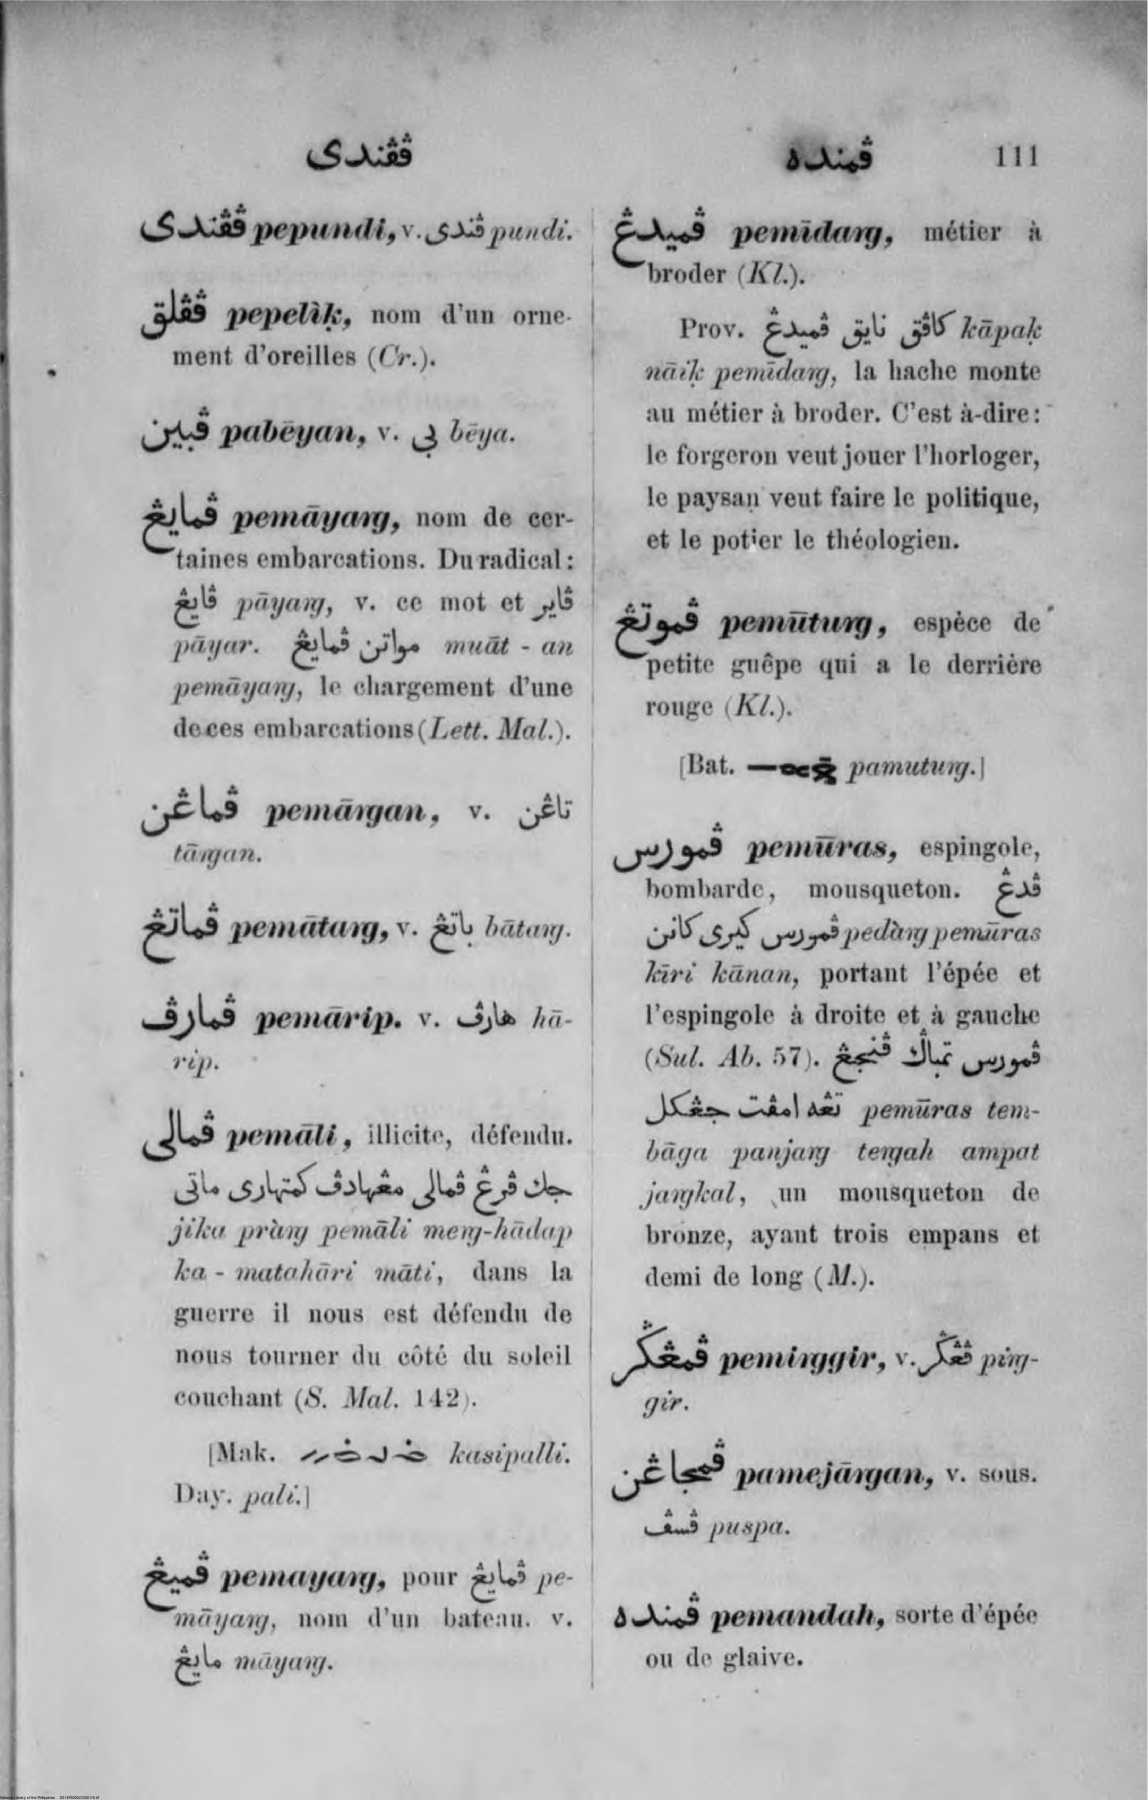 ڤڤندى
ڤمنده 111
ڤڤندى pepundi, v. ڤندى pundi.
ڤڤلق pepelìḳ, nom d'un orne-
ment d'oreilles (Cr.).
ڤبين pabēyan, v. بي bēya.
ڤمايڠ pemāyaṃg, nom de cer-
taines embarcations. Du radical :
ڤايڠ pāyaṃg, v. ce mot et ڤاير
pāyar. مواتن ڤمايڠ muāt - an
pemāyaṃg, le chargement d'une
de ces embarcations (Lett. Mal.).
ڤماڠن pemāṃgan, v. تاڠن
tāṃgan.
ڤماتڠ pemātaṃg, v. باتڠ bātaṃg.
ڤمارڤ pemārip. v. هارڤ hā-
rip.
ڤمالي pemāli, illicite, défendu.
جك ڤرڠ ڤمالي مڠهادڤ كمتهارى ماتي
jika pràṃg pemāli meṃg-hādap
ka - matahāri māti, dans la
guerre il nous est défendu de
nous tourner du côté du soleil
couchant (S. Mal. 142).
[Mak. kasipalli.
Day. pali.]
ڤميڠ pemayaṃg, pour ڤمايڠ pe-
māyaṃg, nom d'un bateau. v.
مايڠ māyaṃg.
ڤميدڠ pemīdaṃg, métier à
broder (Kl.).
Prov. كاڤق نايق ڤميدڠ kāpaḳ
nāiḳ pemīdaṃg, la hache monte
au métier à broder. C'est à-dire :
le forgeron veut jouer l'horloger,
le paysan veut faire le politique,
et le potier le théologien.
ڤموتڠ pemūtuṃg, espèce de
petite guêpe qui a le derrière
rouge (Kl.).
[Bat. pamutuṃg.]
ڤمورس pemūras, espingole,
bombarde, mousqueton. ڤدڠ
ڤمورس كيرى كانن pedàṃg pemūras
kīri kānan, portant l'épée et
l'espingole à droite et à gauche
(Sul. Ab. 57). ڤمورس تمباݢ ڤنجڠ
تڠه امڤت جڠكل pemūras tem-
bāga panjaṃg teṃgah ampat
jaṃgkal, un mousqueton de
bronze, ayant trois empans et
demi de long (M.).
ڤمڠݢر pemiṃggir, v. ڤڠݢر piṃg-
gir.
ڤمجاڠن pamejāṃgan, v. sous.
ڤسڤ puspa.
ڤمنده pemandah, sorte d'épée
ou de glaive.